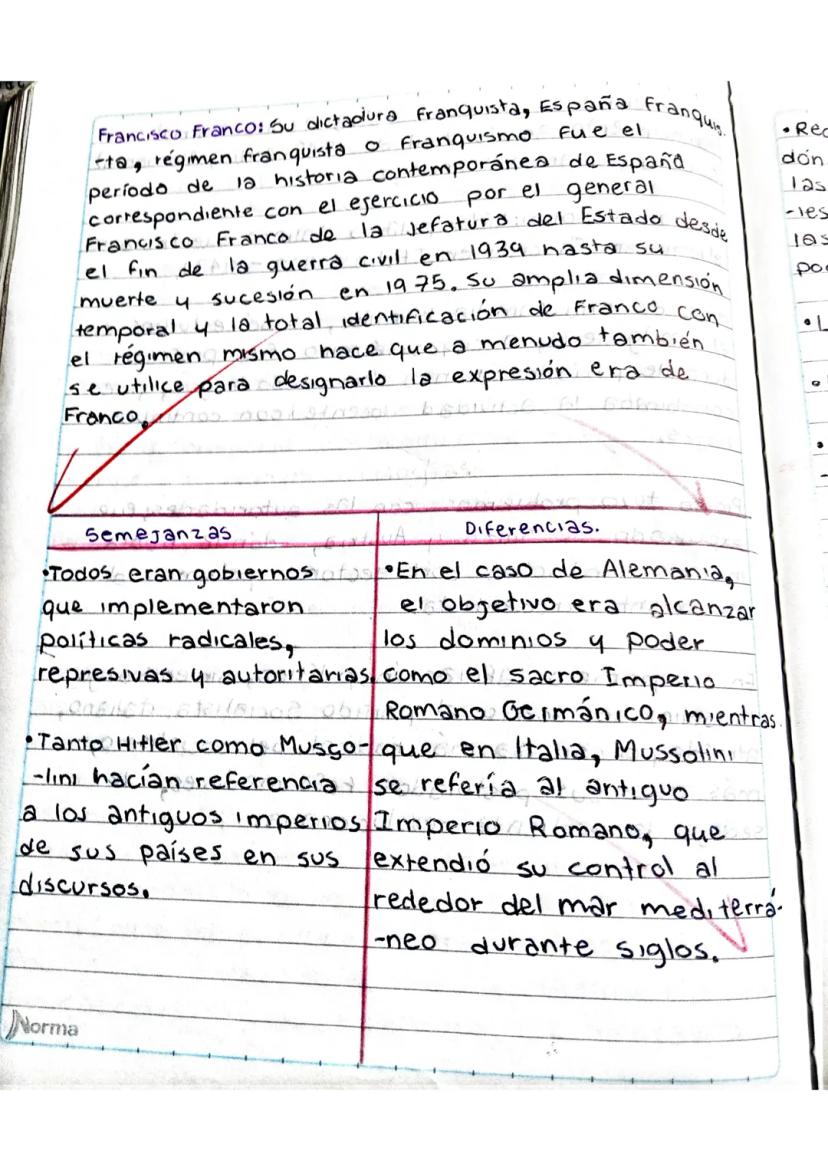 Francisco Franco: Su dictadura franquista, España Franquis
-ta, régimen franquista o franquismo fue el
período de la historia contemporánea de España
correspondiente con el ejercicio por el general
Francisco Franco de la Jefatura del Estado desde
el fin de la guerra civil en 1939 hasta su
muerte y sucesión en 1975. Su amplia dimensión
temporal y la total identificación de Franco con
el régimen mismo hace que a menudo también
se utilice para designarlo la expresión era de
Franco.
Semejanzas
•Todos eran gobiernos
que implementaron
políticas radicales,
represivas y autoritarias.
•Tanto Hitler como Musso-
-lini hacían referencia
a los antiguos imperios
de sus países en sus
discursos.
Diferencias.
•En el caso de Alemania,
el objetivo era alcanzar
los dominios y poder
como el sacro Imperio
Romano Germánico, mientras
que en Italia, Mussolini
se refería al antiguo
Imperio Romano, que
extendió su control al
rededor del mar mediterrá-
-neo durante siglos.
Norma
• Rec
las
-ies
las
• L